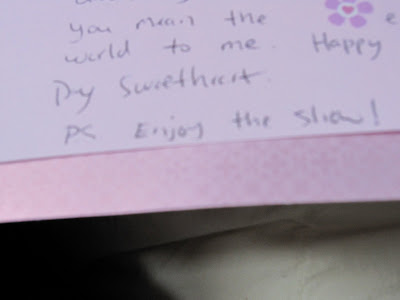 you mean the
world to me. Happy
Day Sweetheart.
PS Enjoy the show!